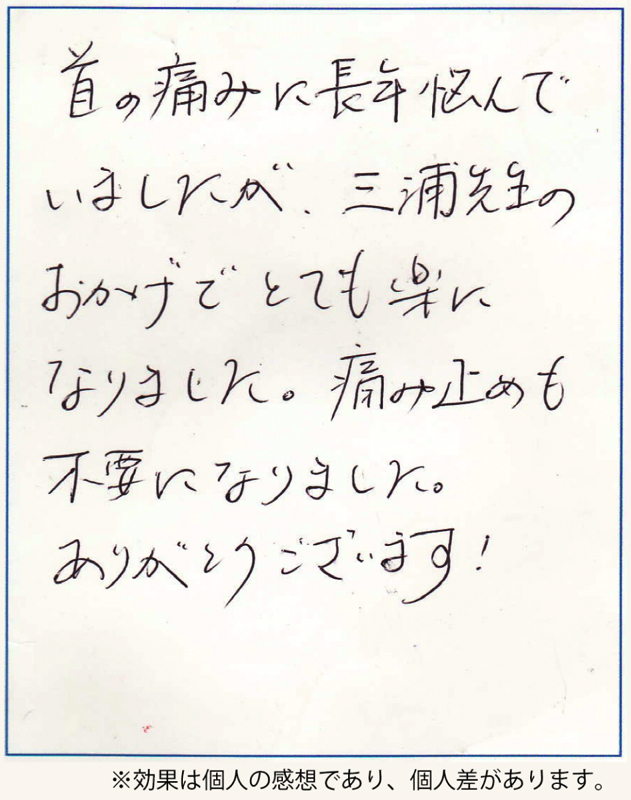 首の痛みに長年悩んで
いましたが、三浦先生の
おかげでとても楽に
なりました。痛み止めも
不要になりました。
ありがとうございます!
※効果は個人の感想であり、個人差があります。